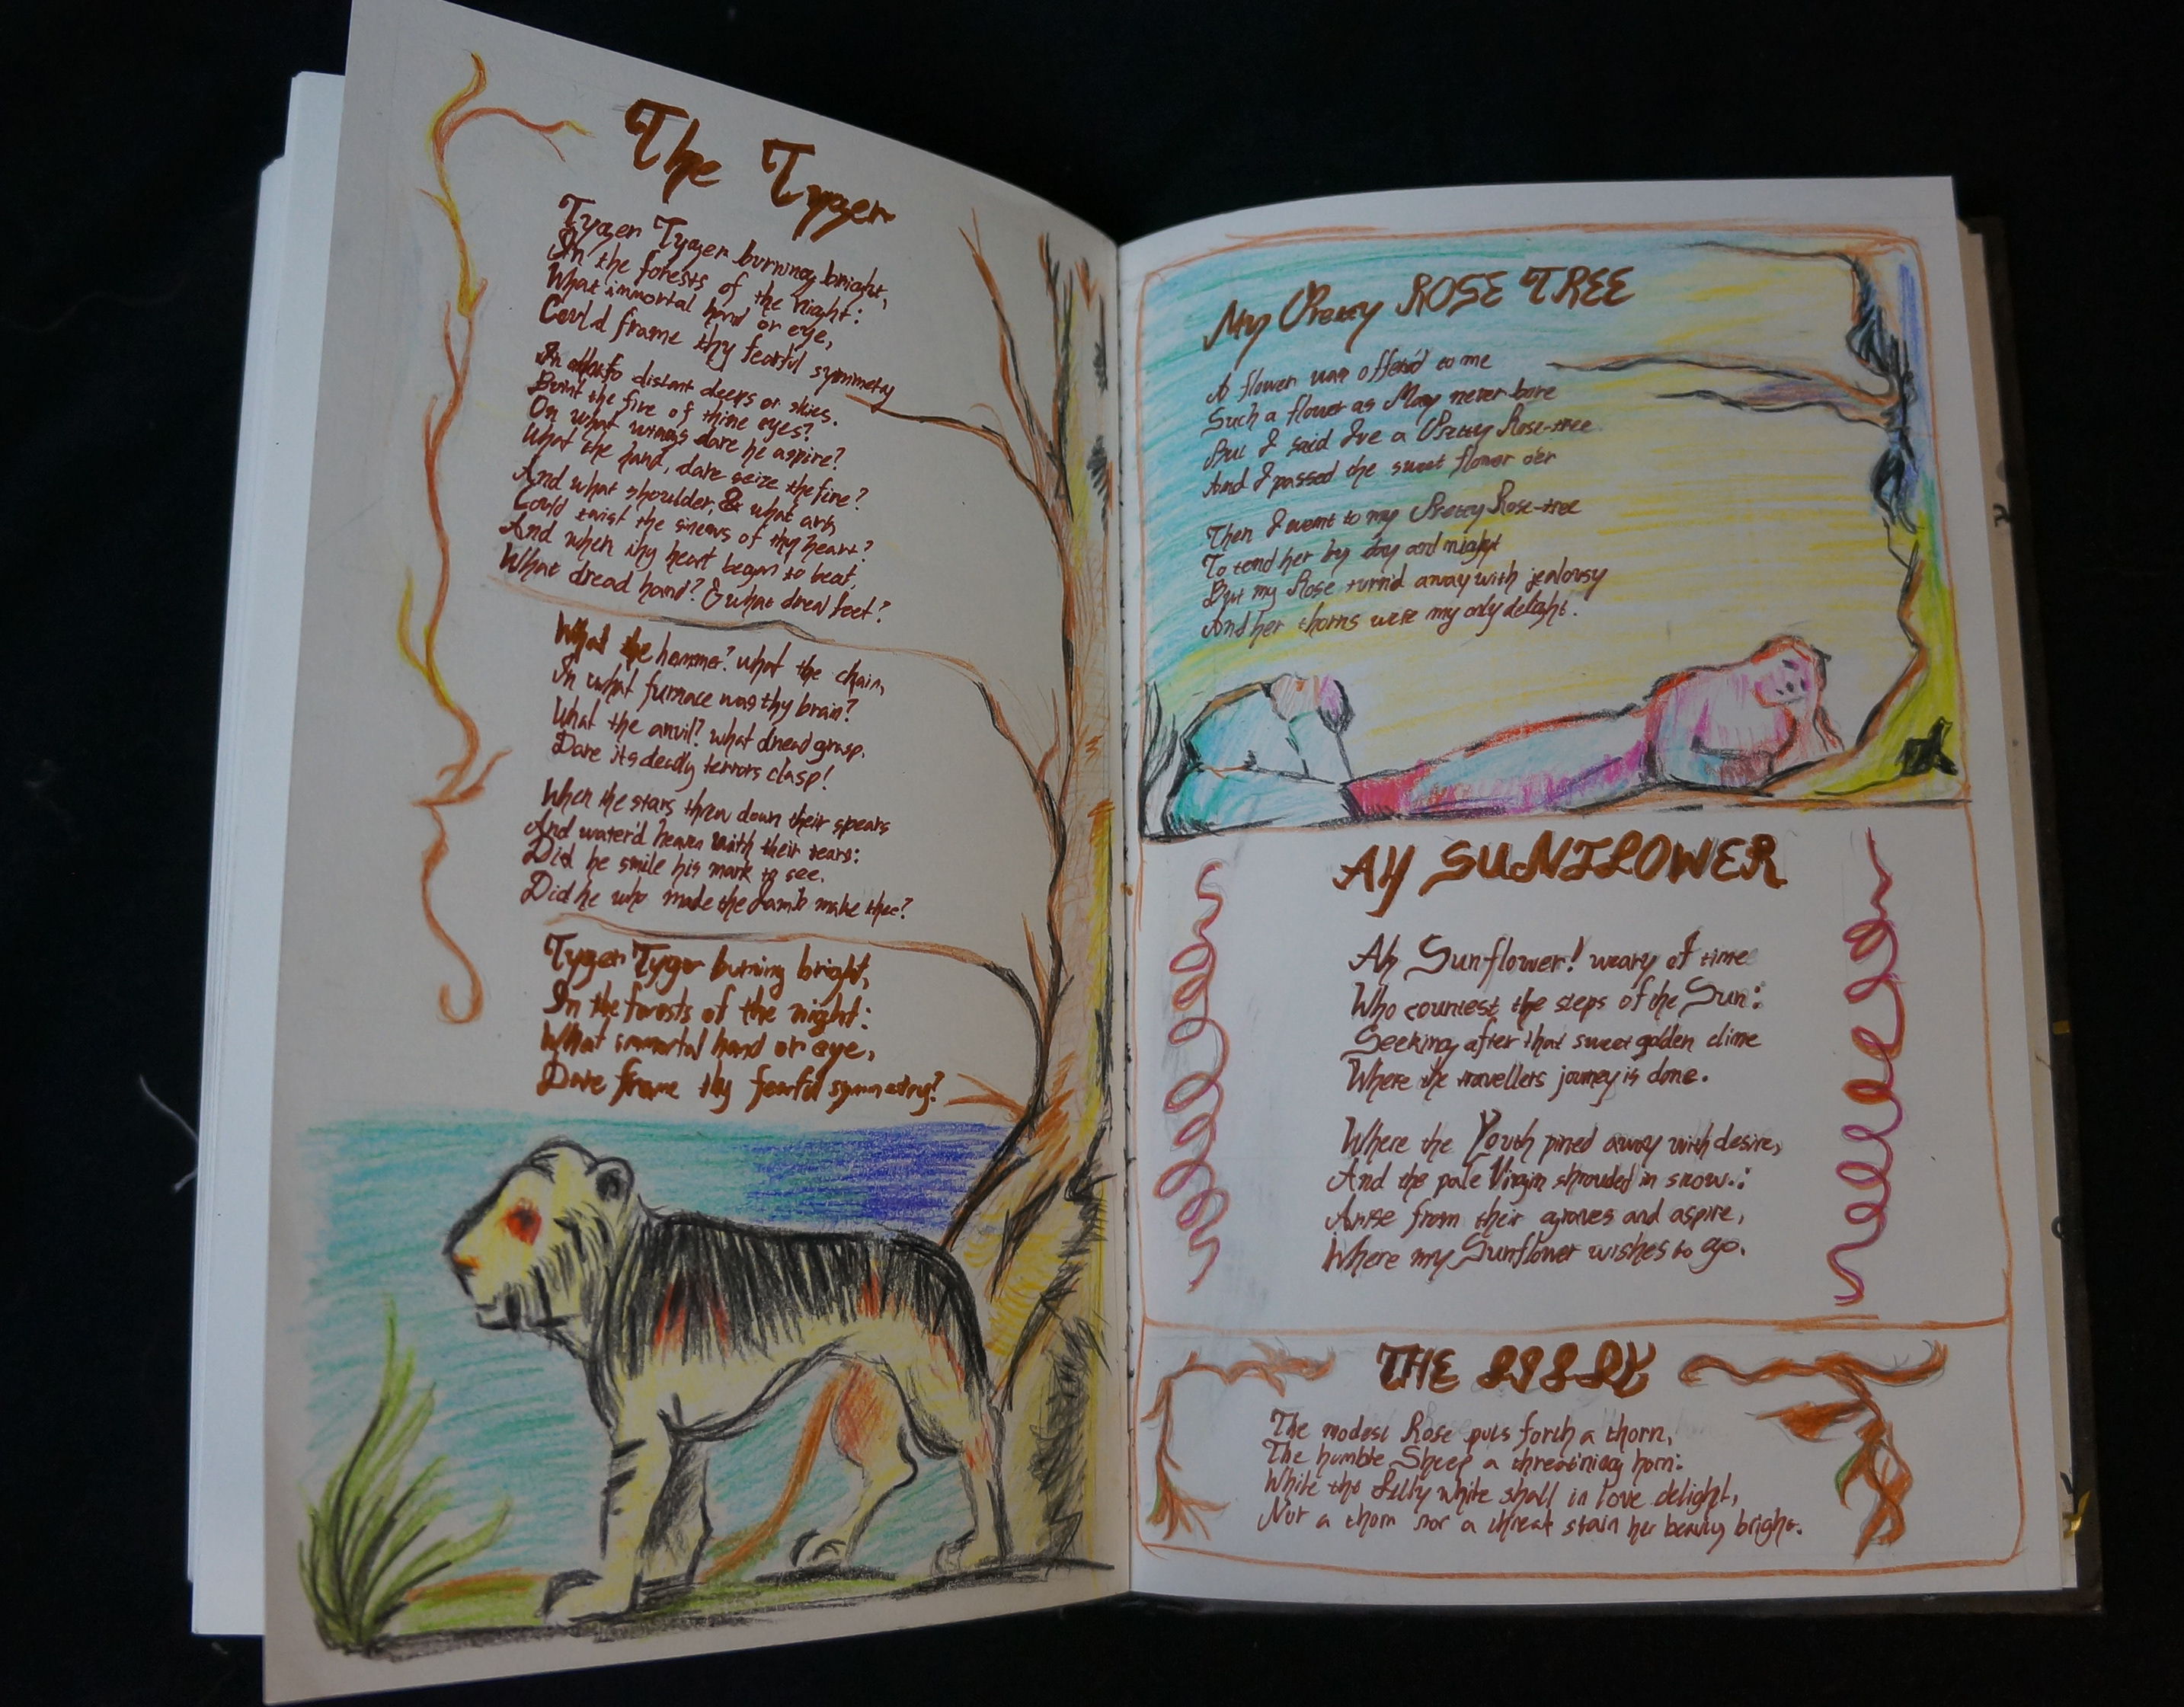 The Tyger
Tyger Tyger burning bright,
In the forests of the night:
What immortal hand or eye,
Could frame thy fearful symmetry
In distant deeps or skies.
Burnt the fire of thine eyes?
On what wings dare he aspire?
What the hand, dare seize the fire?
And what shoulder, & what art,
Could twist the sinews of thy heart?
And when thy heart began to beat,
What dread hand? & what dread feet?
What the hammer? what the chain,
In what furnace was thy brain?
What the anvil? what dread grasp.
Dare its deadly terrors clasp!
When the stars threw down their spears
And water'd heaven with their tears:
Did he smile his mark to see.
Did he who made the Lamb make thee?
Tyger Tyger burning bright,
In the forests of the night:
What immortal hand or eye,
Dare frame thy fearful symmetry?
My Pretty ROSE TREE
A flower was offerd to me
Such a flower as May never bore
But I said Ive a Pretty Rose-tree
And I passed the sweet flower oer
Then I went to my Pretty Rose-tree
To tend her by day and night
But my Rose turnd away with jealousy
And her thorns were my only delight.
AH SUNFLOWER
Ah Sunflower! weary of time
Who countest the steps of the Sun:
Seeking after that sweet golden clime
Where the travellers journey is done.
Where the Youth pined away with desire,
And the pale Virgin shrouded in snow:
Arise from their graves and aspire,
Where my Sunflower wishes to go.
THE LILLY
The modest Rose puts forth a thorn,
The humble Sheep a threatning horn:
While the Lilly white shall in love delight,
Nor a thorn nor a threat stain her beauty bright.